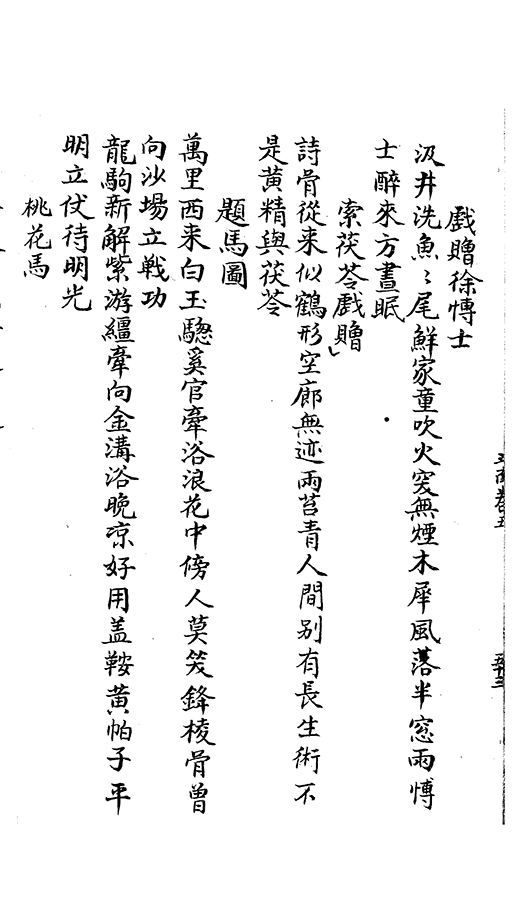 戲贈徐愽士
汲井洗魚〻尾鮮家童吹火突無煙木犀風落半窓雨愽
士醉來方晝眠
索茯苓戲贈
詩骨從来似鶴形空廊無迹雨苔青人間别有長生術不
是黄精與茯苓
題馬圖
萬里西来白玉驄奚官牽浴浪花中傍人莫笑鋒棱骨曾
向沙場立戰功
龍駒新解紫游繮牽向金溝浴晩凉好用盖鞍黄帕子平
明立仗待明光
桃花馬